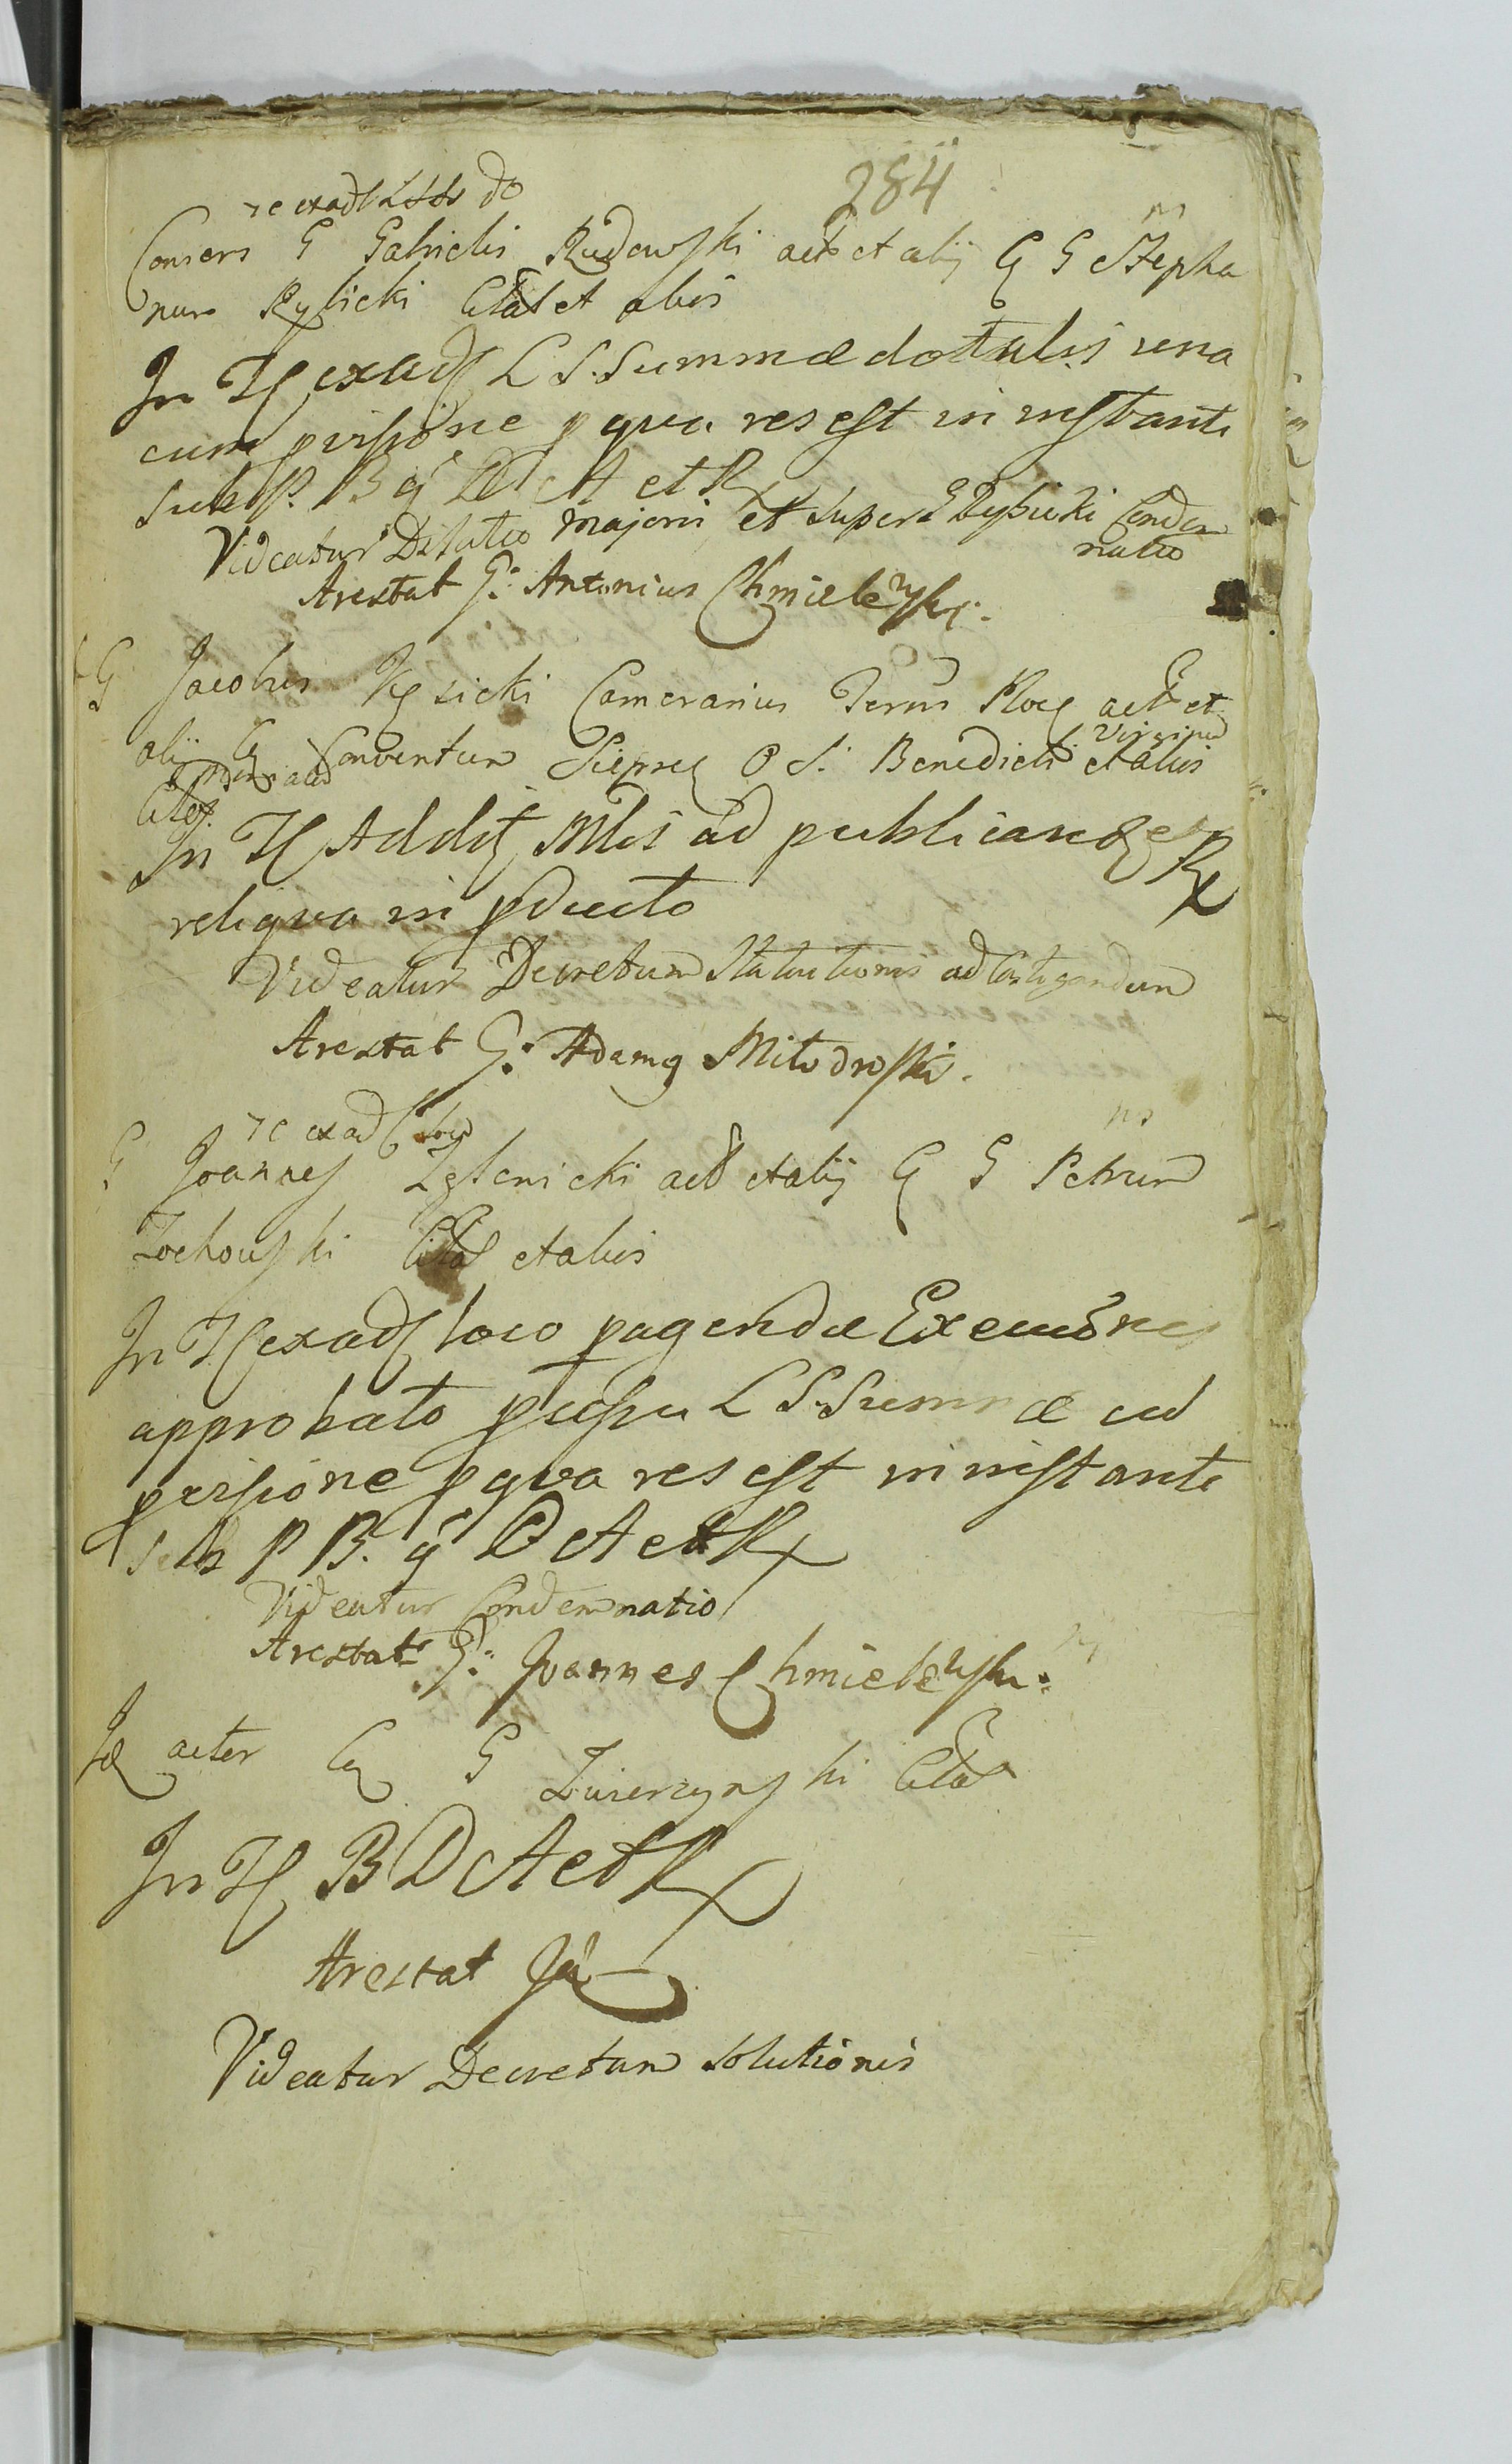 284
Consors G Gabrielis Rudowski act et alij C G Stepha
num Rylicki Citat et alios
In T exad L S. Summæ dotalis una
cum p qua res est in instanti
sub P. B q D A et R
Videatur Dilatio majoris et super G Condem
natio
Arestat G: Antonius Chmielewski.
G Jacobus Kęsicki Camerarius Terrüs Ploc act et
alij C Conventum Sieprc O S. Benedicti Virginu et alios
Citos.
In T Addit Mbis ad publicand R
reliqua in pducto
Videatur Decretum Statuitionis ad Castigandum
Arestat G: Adamq Mitodroski.
G Joannes Zglenicki act et alij C G Petrum
Zochowski Citat et alios
In T exad loco pagendæ Exeuõnes
approbato L S. Summæ cu
p qua res est in instanti
sub P B. q D A et R
Videatur Condemnatio
Arestat G: Joannes Chmielewski.
Id actor C G Zwierzynski Citat
In T B D A et R
Arestat Id
Videatur Decretum solutionis